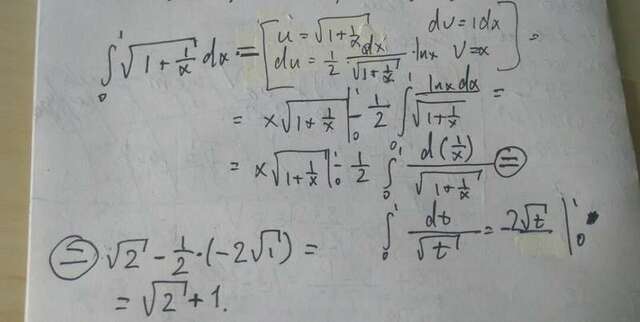 ∫₀¹ √(1 + 1/x) dx = [ u = √(1 + 1/x) dv = 1dx
du = 1/2 dx/√(1 + 1/x) · lnx v = x ] =
= x√(1 + 1/x) |₀¹ - 1/2 ∫₀¹ lnx dx/√(1 + 1/x) =
= x√(1 + 1/x) |₀¹ - 1/2 ∫₀¹ d(1/x)/√(1 + 1/x) =
= √2 - 1/2 · (-2√1) = ∫₀¹ dt/√t = 2√t |₀¹
= √2 + 1.